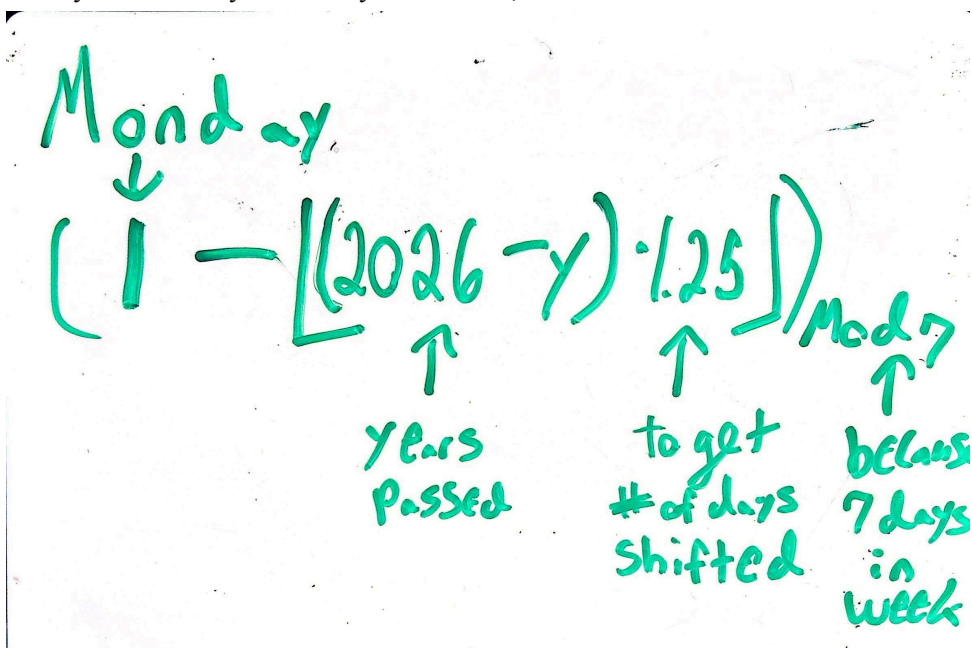 Monday
(1 - ⌊(2026 - y) · 1.25⌋) Mod 7
years
passed
to get
# of days
shifted
because
7 days
in
week